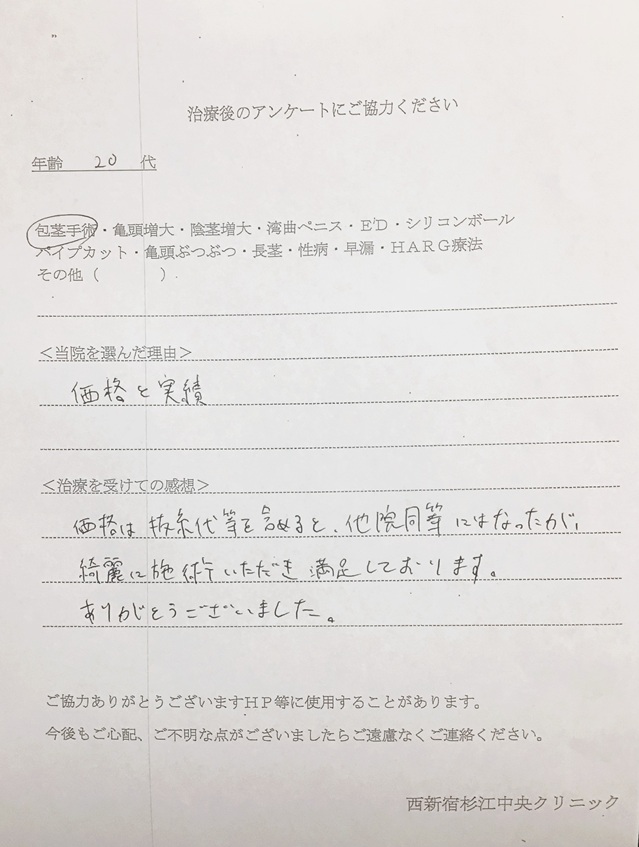 治療後のアンケートにご協力ください
年齢 20 代
包茎手術・亀頭増大・陰茎増大・湾曲ペニス・ED・シリコンボール
パイプカット・亀頭ぶつぶつ・長茎・性病・早漏・HARG療法
その他( )
<当院を選んだ理由>
価格と実績
<治療を受けての感想>
価格は抜糸代等を含めると、他院同等にはなったが、
綺麗に施術いただき満足しております。
ありがとうございました。
ご協力ありがとうございますHP等に使用することがあります。
今後もご心配、ご不明な点がございましたらご遠慮なくご連絡ください。
西新宿杉江中央クリニック